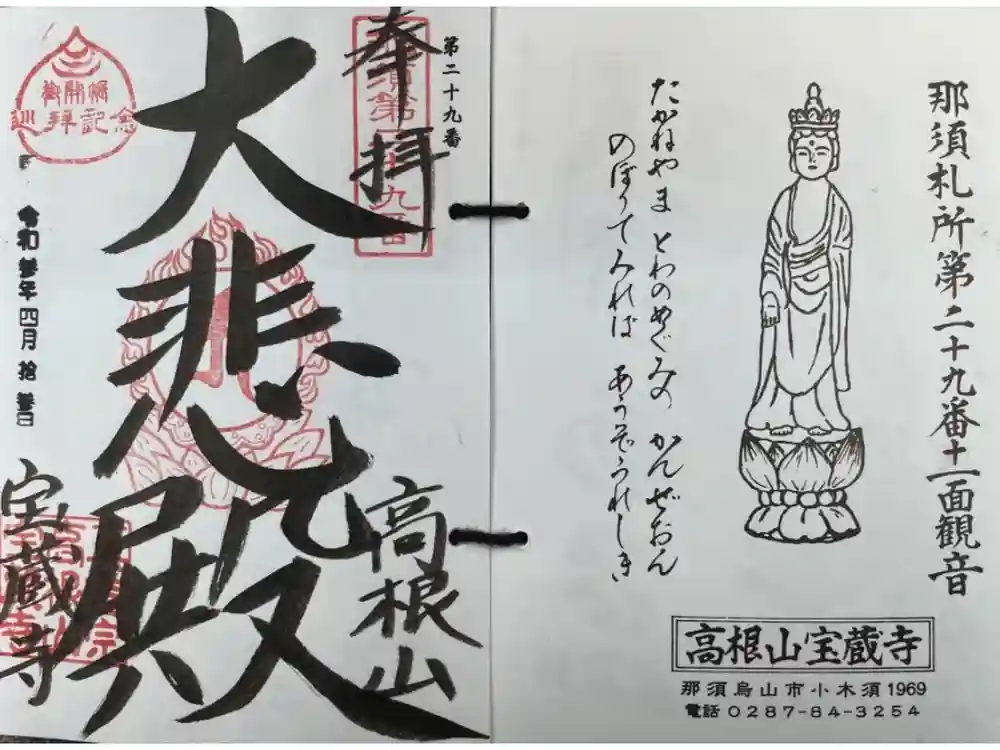 那須札所第二十九番十一面観音
たかねやま とわのめぐみの かんぜおん
のぼりてみれば ありぞうれしき
高根山宝蔵寺
那須烏山市小木須1969
電話 0287-84-3254
第二十九番
奉拝
那須第二十九番
大悲殿
高根山
御開帳
巡拝記念
令和参年四月拾参日
宝蔵寺